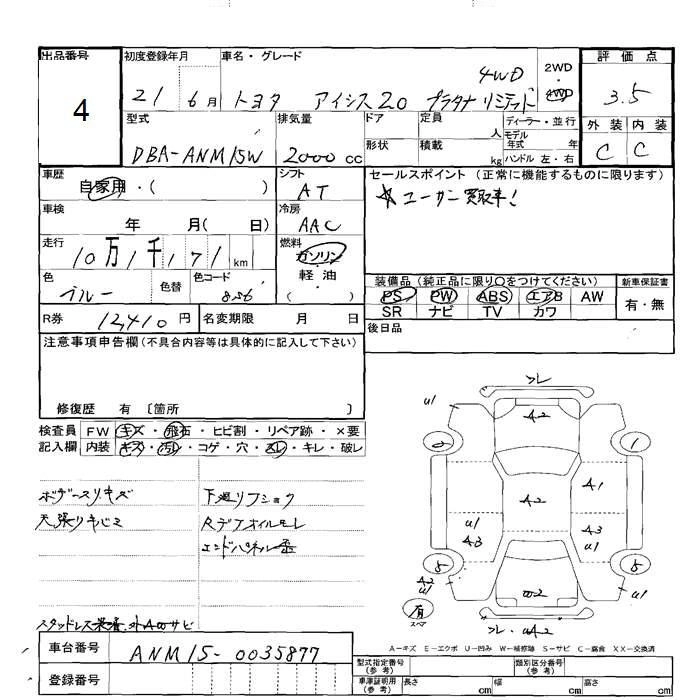 出品番号 初度登録年月 車名・グレード 2WD・4WD 評価点
4
21 6月 トヨタ アイシス20 プラタナ リミテッド 4WD
3.5
型式 排気量 ドア 定員 人 ディーラー・並行
モデル年式 年
外装 内装
DBA-ANM15W 2000cc 形状 積載 kg ハンドル 左・右 C C
車歴 シフト セールスポイント(正常に機能するものに限ります)
自家用・( ) AT ☆ユーザー買取車!
車検 冷房
年 月( 日) AAC
走行 燃料
10万1千171km ガソリン・軽油・( )
色 色替 色コード 装備品(純正品に限り○をつけてください) 新車保証書
ブルー 8S6 PS PW ABS エアB AW 有・無
SR ナビ TV カワ
R券 12,410円 名変期限 月 日 後日品
注意事項申告欄(不具合内容等は具体的に記入して下さい)
修復歴 有 〔箇所 〕
検査員記入欄 FW キズ・飛石・ヒビ割・リペア跡・×要
内装 キズ・汚レ・コゲ・穴・スレ・キレ・破レ
ボデースリキズ 下廻リフショク
天張リキバミ Rデフオイルモレ
エンドパネル歪
スタッドレス装着、外AWサビ
フレ
A2
u1
2
1
A2
A1
u1
A3
A3
u1
8
8
A2
u1
W2
u1
有
スペア
フレ・uA2
A-キズ E-エクボ U-凹み W-補修跡 S-サビ C-腐食 XX-交換済
車台番号 ANM15-0035877
型式指定番号(参考) 類別区分番号(参考)
登録番号 車庫証明用(参考) 長さ cm 幅 cm 高さ cm